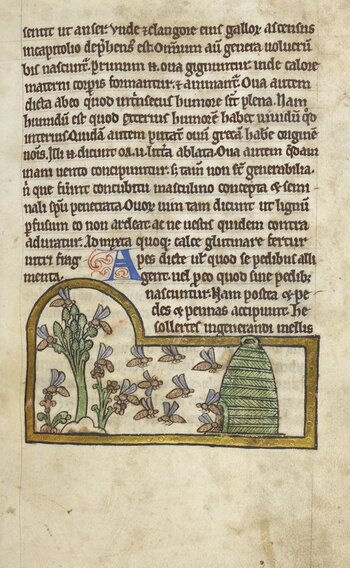 sentit ut anser. Unde & clangore eius gallorꝝ ascensus
in capitolio dep̄hens est. Omnium aū genera uolucrum
bis nascunt᷑. Primum n̄ oua gignuntur. inde calore
materni corpis formantur. & animant᷑. Oua autem
dicta ab eo quod uuida sint
humidū est quod exterius humorē habet. uuidū qd̄
interius. Quidā autem putant ouū grecā habe originē
nōis. Illi n̄ dicunt oa. u. littera ablata. Oua autem q̄dam
inani uento concipiuntur. s; tam̄ non s̄t generabilia.
n̄ que fuerint concubitu masculino concepta & semi
nali sp̄u penetrata. Ouorꝝ uim tam dicunt ut lignū
p̄fusum eo non ardeat. ac ne uestis quidem contra
aduratur. Admixta quoq; calce glutinare fertur
uitri frag
menta.
Apes dicte ul̓ quod se pedibus alli
gent. uel p̄ eo quod sine pedib;
nascuntur. Nam postea & pe
des & pennas accipiunt. He
sollertes in generandi mellis